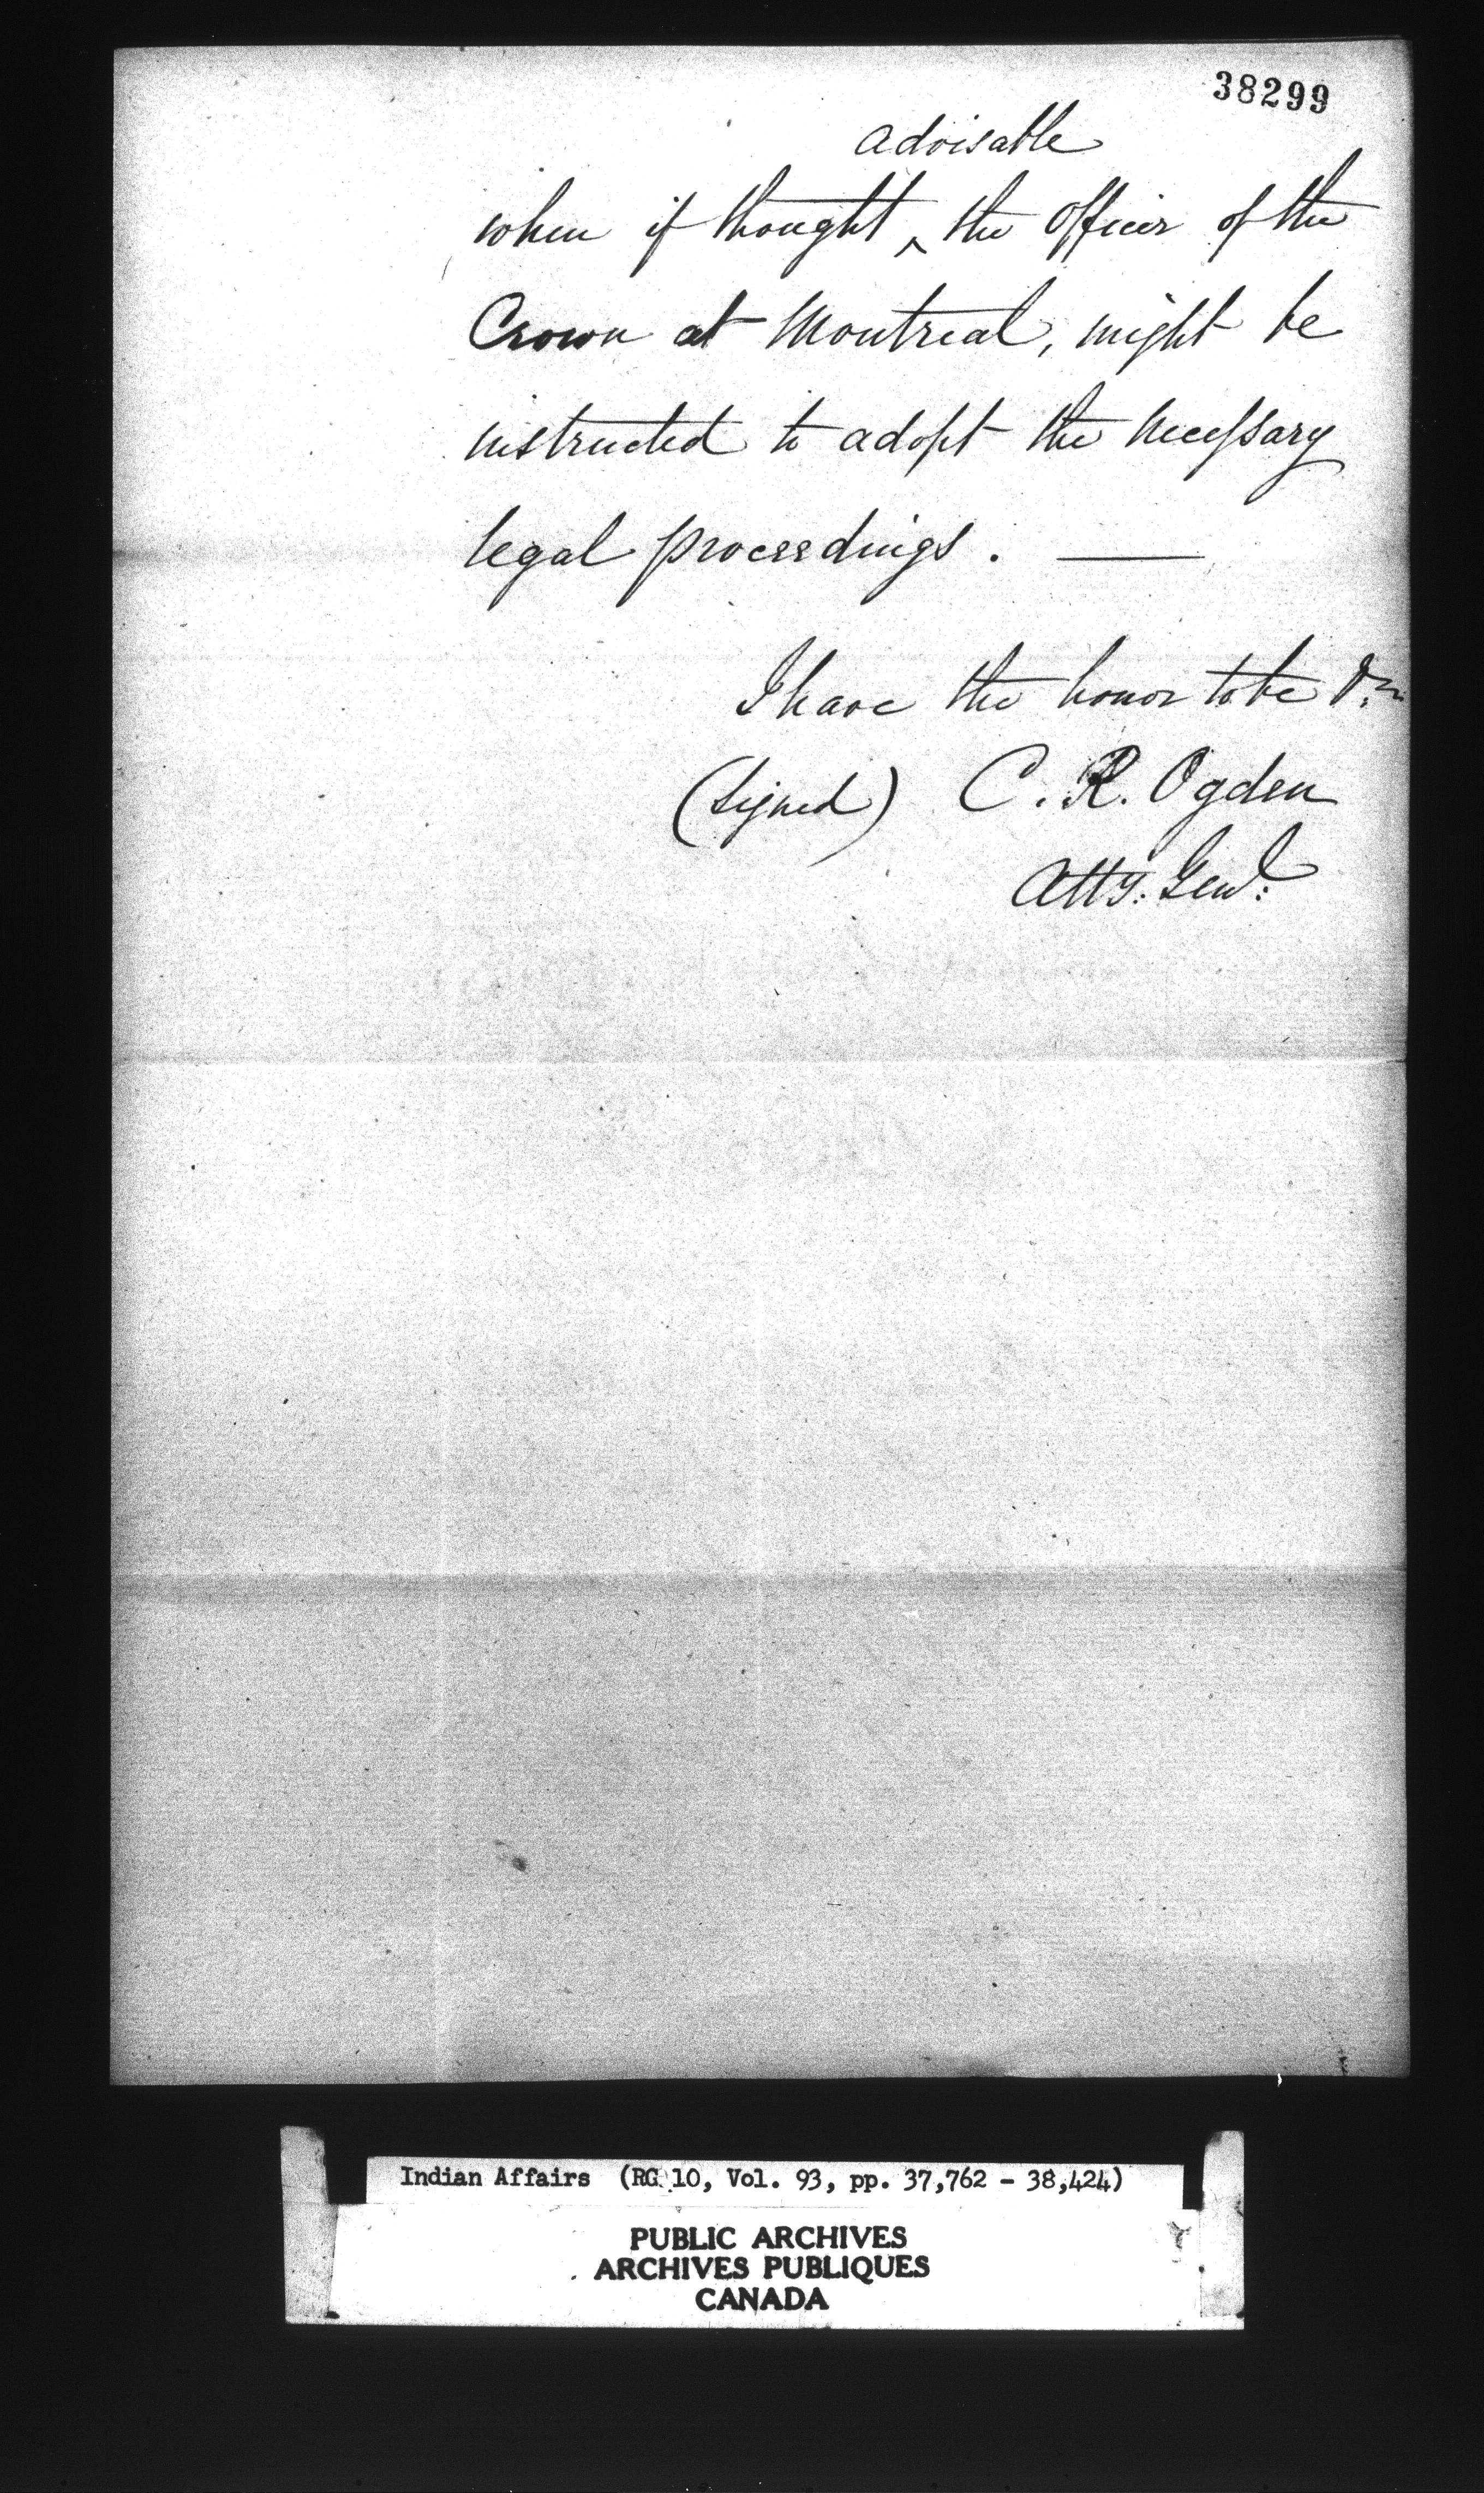 38299
advisable
when if thought ‸ the Officer of the
Crown at Montreal, might be
instructed to adopt the necessary
legal proceedings. —
I have the honor to be
(Signed) C. R. Ogden
Atty: Genl:
Indian Affairs (RG 10, Vol. 93, pp. 37,762 - 38,424)
PUBLIC ARCHIVES
ARCHIVES PUBLIQUES
CANADA